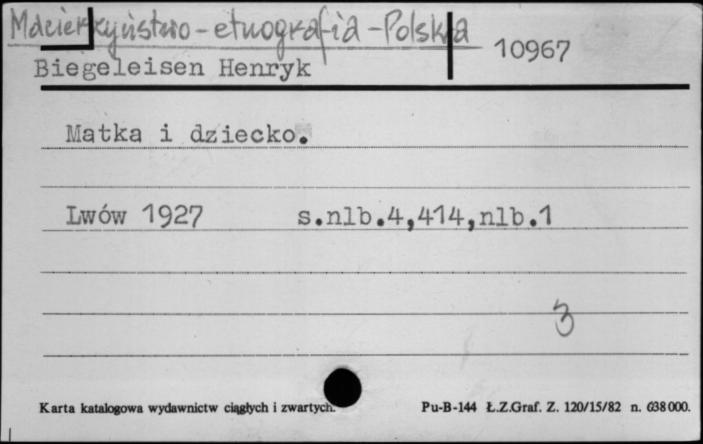 Macierzyństwo - etnografia - Polska
10967
Biegeleisen Henryk
Matka i dziecko.
Lwów 1927 s.nlb.4,414,nlb.1
3
Karta katalogowa wydawnictw ciągłych i zwartych. Pu-B-144 Ł.Z.Graf. Z. 120/15/82 n. 638000.